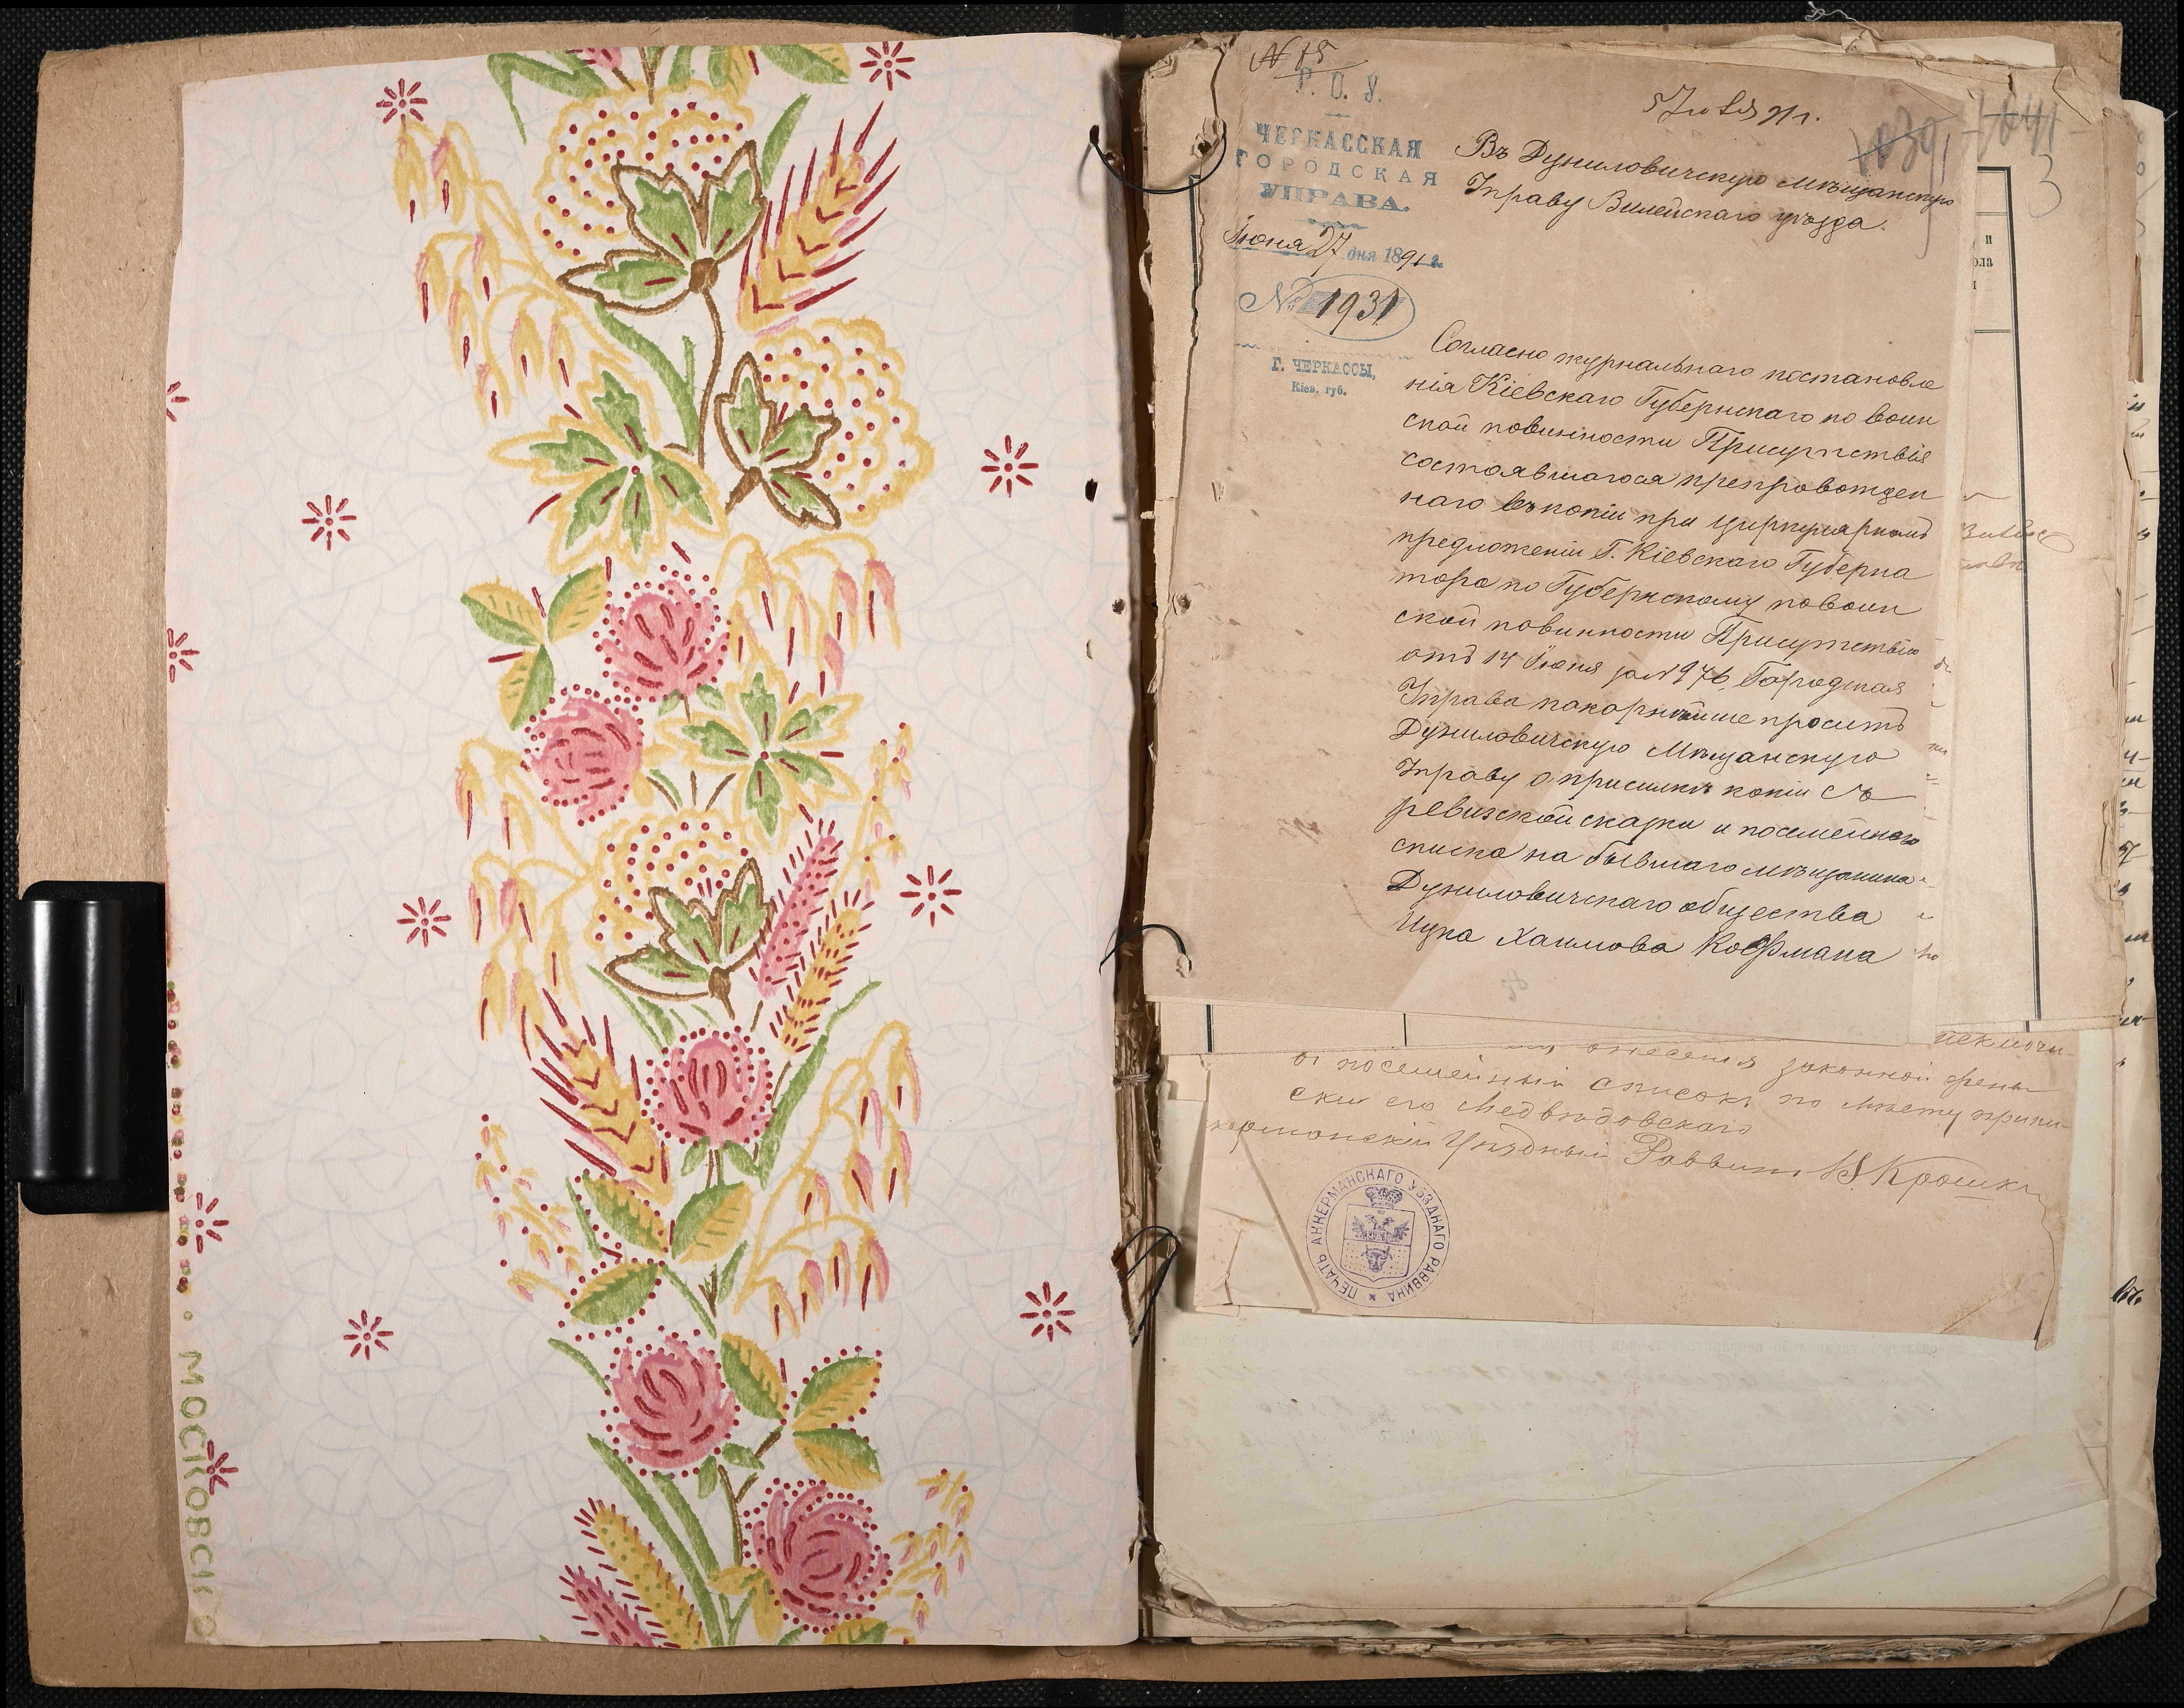 МОСКОВСКО
N 15
Р. О. У.
ЧЕРКАССКАЯ
ГОРОДСКАЯ
УПРАВА.
Іюня 27 дня 1891 г.
№ 1931
Г. ЧЕРКАССЫ,
Кіев. губ.
91 г.
1039
1641
3
Въ Дуниловичскую мѣщанскую
Управу Вилейскаго уѣзда.
Согласно журнальнаго постановле
нія Кіевскаго Губернскаго по воин
ской повинности Присутствія
состоявшагося препровожден
наго въ копіи при циркулярномъ
предложеніи Г. Кіевскаго Губерна
тора по Губернскому по воин
ской повинности Присутствію
отъ 14 Іюня за N 976, Городская
Управа покорнѣйше проситъ
Дуниловичскую Мѣщанскую
Управу о присылкѣ копіи съ
ревизской сказки и посемейнаго
списка на бывшаго мѣщанина
Дуниловичскаго общества
Ицка Хаимова Кофмана
внесенія законной
посемейный списокъ по мѣсту припи-
ски его Медвѣдовскаго
Уѣздный Раввинъ
ПЕЧАТЬ АККЕРМАНСКАГО УѢЗДНАГО РАВВИНА